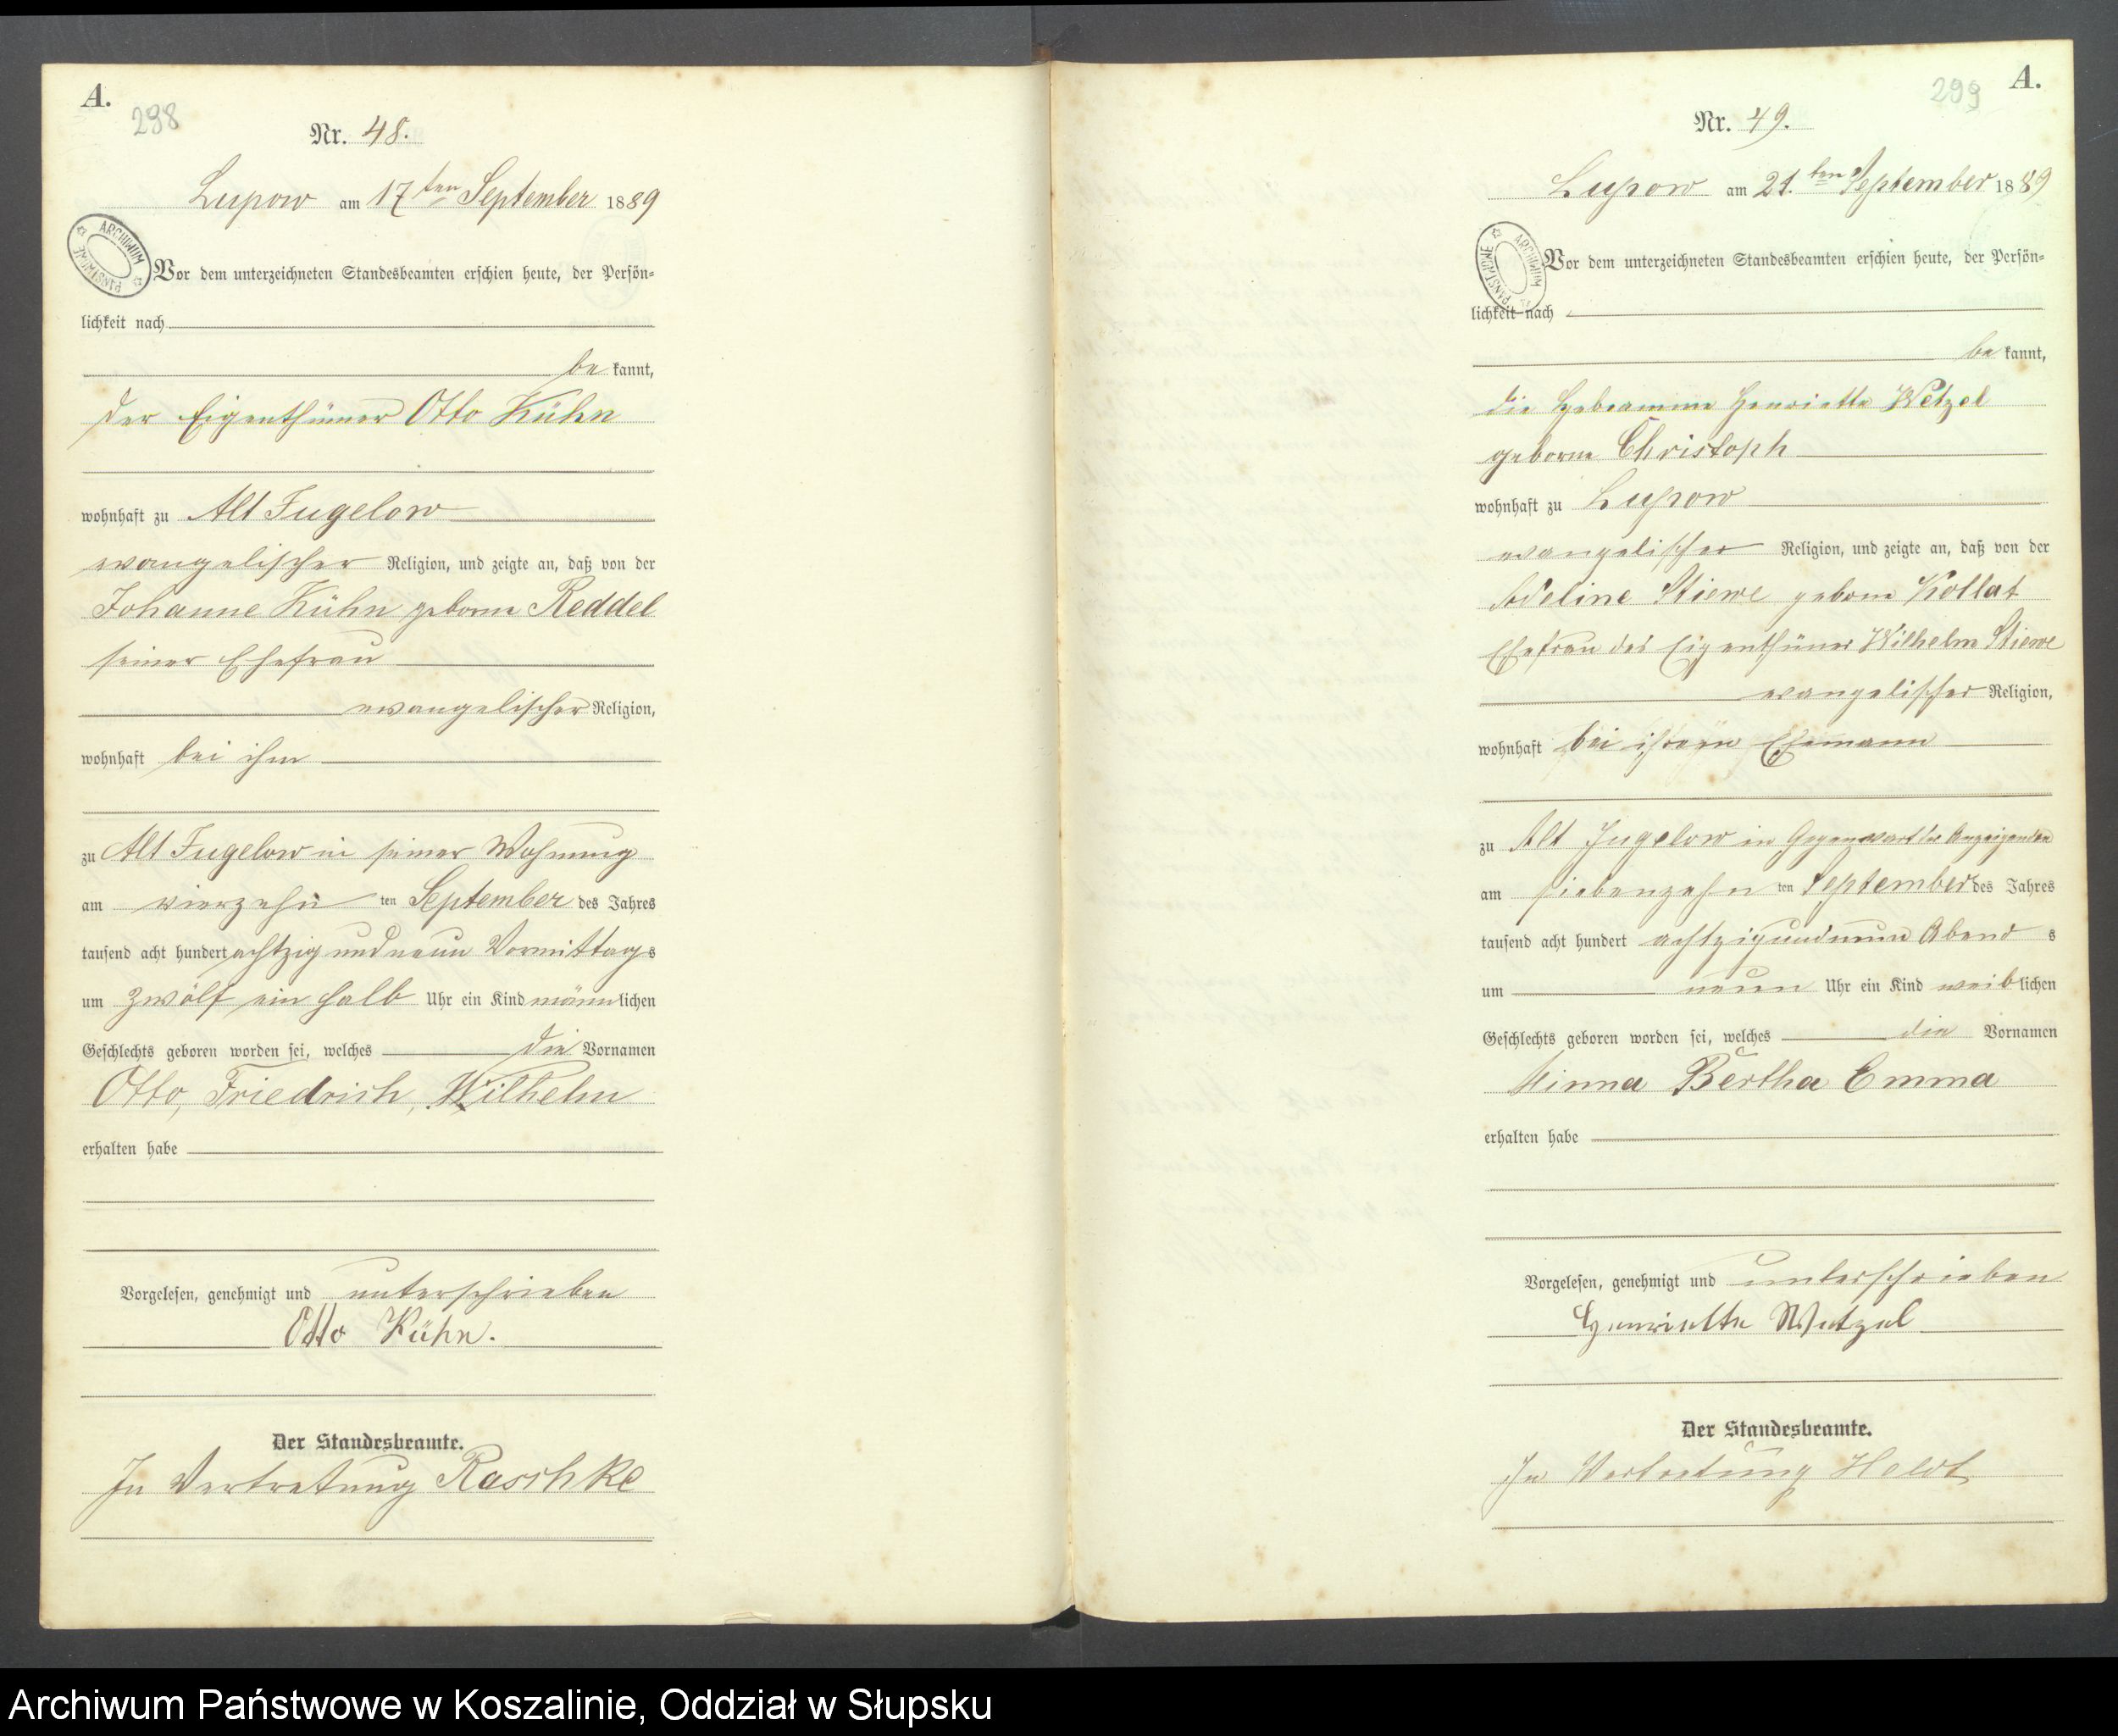 A.
298
Nr. 48.
Lupow am 17ten September 1889
ARCHIWUM PAŃSTWOWE
Vor dem unterzeichneten Standesbeamten erschien heute, der Persön=
lichkeit nach
be kannt,
der Eigenthümer Otto Kühn
wohnhaft zu Alt Jugelow
evangelischer Religion, und zeigte an, daß von der
Johanne Kühn geborne Reddel
seiner Ehefrau
evangelischer Religion,
wohnhaft bei ihm
zu Alt Jugelow in seiner Wohnung
am vierzehn ten September des Jahres
tausend acht hundert achtzig und neun Vormittags
um zwölf ein halb Uhr ein Kind männlichen
Geschlechts geboren worden sei, welches die Vornamen
Otto, Friedrich, Wilhelm
erhalten habe
Vorgelesen, genehmigt und unterschrieben
Otto Kühn.
Der Standesbeamte.
In Vertretung Raschke
A.
299
Nr. 49.
Lupow am 21.ten September 1889
ARCHIWUM PAŃSTWOWE
Vor dem unterzeichneten Standesbeamten erschien heute, der Persön=
lichkeit nach
be kannt,
die Hebeamme Henriette Wetzel
geborne Christoph
wohnhaft zu Lupow
evangelischer Religion, und zeigte an, daß von der
Adeline Stiewe geborne Kollat
Ehefrau des Eigenthümer Wilhelm Stiewe
evangelischer Religion,
wohnhaft bei ihrem Ehemann
zu Alt Jugelow in Gegenwart der Anzeigenden
am siebenzehn ten September des Jahres
tausend acht hundert achtzigundneun Abend s
um neun Uhr ein Kind weiblichen
Geschlechts geboren worden sei, welches die Vornamen
Minna Bertha Emma
erhalten habe
Vorgelesen, genehmigt und unterschrieben
Henriette Wetzel
Der Standesbeamte.
In Vertretung Heldt
Archiwum Państwowe w Koszalinie, Oddział w Słupsku